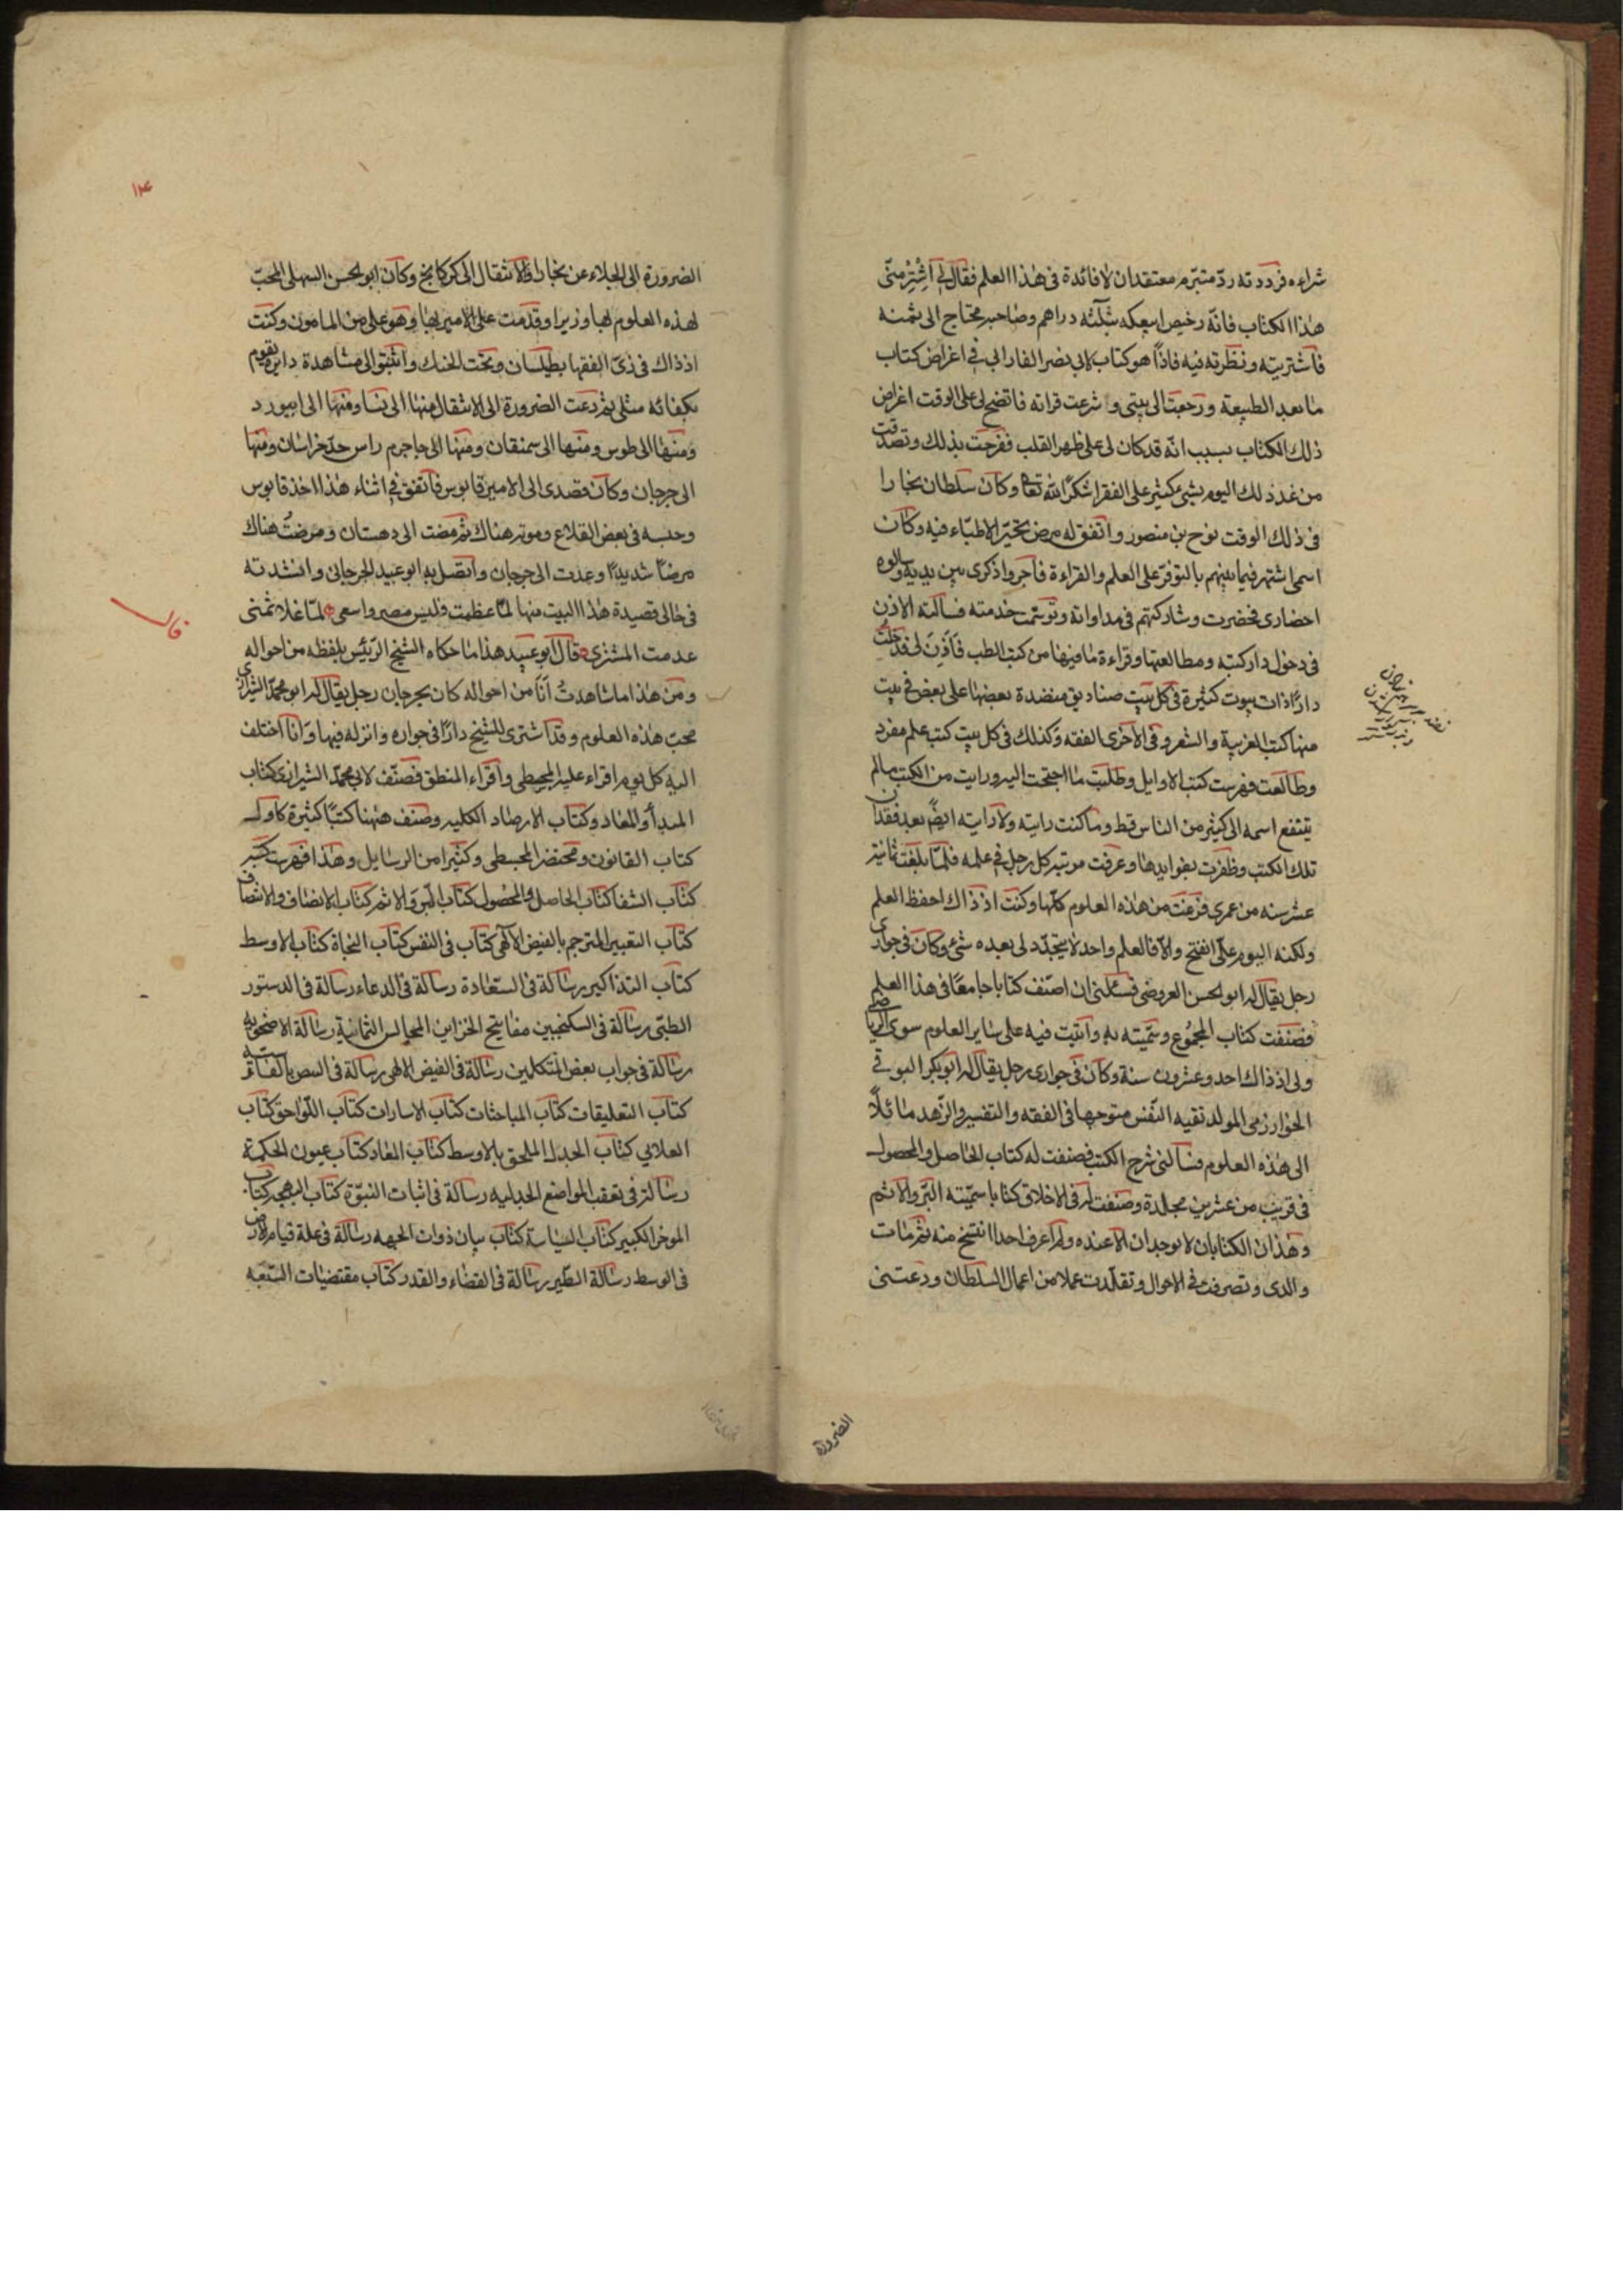 شراءه فرددته ردّ متبرّم معتقد ان لا فائدة فى هذا العلم فقال لى اشتر منّى
هذا الكتاب فانّه رخيص ابيعكه بثلثه دراهم وصاحبه محتاج الى ثمنه
فاشتريته ونظرته فيه فاذاً هو كتاب لابى نصر الفارابى فى اغراض كتاب
ما بعد الطبيعة ورجعت الى بيتى وشرعت قراته فاتضح لى على الوقت اغراض
ذلك الكتاب بسبب انّه قد كان لى على ظهر القلب ففرحت بذلك وتصدقت
من غد ذلك اليوم بشىء كثير على الفقرا شكرًا لله تعا وكان سلطان بخارا
فى ذلك الوقت نوح بن منصور واتفق له مرض تحيّر الاطبّاء فيه وكان
اسمى اشتهر فيما بينهم بالتوفّر على العلم والقراءة فاجروا ذكرى بين يديه وسالوه
احضارى فحضرت وشاركتهم فى مداواته وتوسّمت خدمته فسالته الاذن
فى دخول دار كتبه ومطالعتها وقراءة ما فيها من كتب الطب فاَذِنَ لى فدخلت
دارًا ذات بيوت كثيرة فى كل بيت صناديق منضدة بعضها على بعض فى بيت
منها كتب العربية والشعر وفى الاخرى الفقه وكذلك فى كل بيت كتب علم مفرد
وطالعت فهرست كتب الاوايل وطلبت ما احتجت اليه ورايت من الكتب مالم
يتنفع اسمه الى كثير من الناس قط وما كنت رايته ولا رايته ايضً بعد فقدان
تلك الكتب وظفرت بفوايدها وعرفت مرتبة كل رجل فى علمه فلمّا بلغت ثمانية
عشر سنه من عمرى فرغت من هذه العلوم كلّها وكنت اذ ذاك احفظ العلم
ولكنه اليوم علىّ انفتح والّا فالعلم واحد لا يتجدّد لى بعده شىء وكان فى جوارى
رجل يقال له ابو الحسن العروضى فسئلنى ان اصنّف كتابا جامعًا فى هذا العلم
فصنفت كتاب المجموع وسمّيته به واتيت فيه على ساير العلوم سوى الرياضى
ولى اذ ذاك احد وعشرون سنة وكان فى جوارى رجل يقال له ابو بكر البرقى
الخوارزمى المولد تقيه النّفس متوجها فى الفقه والتفسير والزّهد مائلًا
الى هذه العلوم فسالنى شرح الكتب فصنفت له كتاب الحاصل والمحصول
فى قريب من عشرين مجلدة وصنفت له فى الاخلاق كتابا سمّيته البّر والاثم
وهذان الكتابان لا يوجدان الا عنده ولم اعرف احدا انتسخ منه ثم مات
والدى وتصرفت فى الاحوال وتقلّدت عملا من اعمال السلطان ودعتنى
الضرورة
الضرورة الى الجلاء عن بخارا والانتقال الى كركانج وكان ابو الحسن السهلى المحبّ
لهذه العلوم بها وزيرا وقدمت على الامير بها وهو على بن المامون وكنت
اذ ذاك فى زىّ الفقها بطيلسان وتحت الحنك واثبتوا لى مشاهدة دايرة تقوم
بكفائه مثلى ثم دعت الضرورة الى الانتقال منها الى نسا ومنها الى ابيورد
ومنها الى طوس ومنها الى سمنقان ومنها الى جاجرم راس حدّ خراسان ومنها
الى جرجان وكان قصدى الى الامير قابوس فاتفق فى اثناء هذا اخذ قابوس
وحبسه فى بعض القلاع وموته هناك ثم مضت الى دهستان ومرضتُ هناك
مرضًا شديدًا وعدت الى جرجان واتصل به ابو عبيد الجرجانى وانشدته
فى حالى قصيدة هذا البيت منها لمّا عظمت فليس مصر واسعى لمّا غلا ثمنى
عدمت المشترى قال ابو عبيد هذا ما حكاه الشيخ الرّئيس بلفظه من احواله
ومن هذا ما شاهدتُ اَنَا من احواله كان بجرجان رجل يقال له ابو محمّد الشيرازى
محب هذه العلوم وقد اشترى للشيخ دارًا فى جواره وانزله فيها وانا اختلف
اليه كل يوم اقراء عليه المجيطى واقراء المنطق فصنّف لابى محمّد الشيرازى كتاب
المبدأ والمعاد وكتاب الارصاد الكليه وصنف ههنا كتبًا كثيرة كاول
كتاب القانون ومختصر المجسطى وكثيرا من الرسايل وهذا فهرست كتبه
كتاب الشفا كتاب الحاصل والمحصول كتاب البّر والاثم كتاب الانصاف والانتصاف
كتاب التعبير المترجم بالفيض الآلهى كتاب فى النفس كتاب النجاة كتاب الاوسط
كتاب التذاكير رسالة فى السّعادة رسالة فى الدعاء رسالة فى الدستور
الطبّى رسالة فى السكنجبين مفاتيح الخزاين المجالس الثمانية رسالة الاضحويه
رسالة فى جواب بعض المتكلمين رسالة فى الفيض الالهى رسالة فى النبض بالفارسيّة
كتاب التعليقات كتاب المباحثات كتاب الاسارات كتاب اللّواحق كتاب
العلايى كتاب الجدل الملحق بالاوسط كتاب المعاد كتاب عيون الحكمة
رسالة فى تعقب المواضع الجدليه رسالة فى اثبات النبوّة كتاب البهجه كتاب
الموجز الكبير كتاب السياسة كتاب بيان ذوات الجهه رسالة فى علة قيام الارض
فى الوسط رسالة الطّير رسالة فى القضاء والقدر كتاب مقتضيات السّبعه
قال
١٤